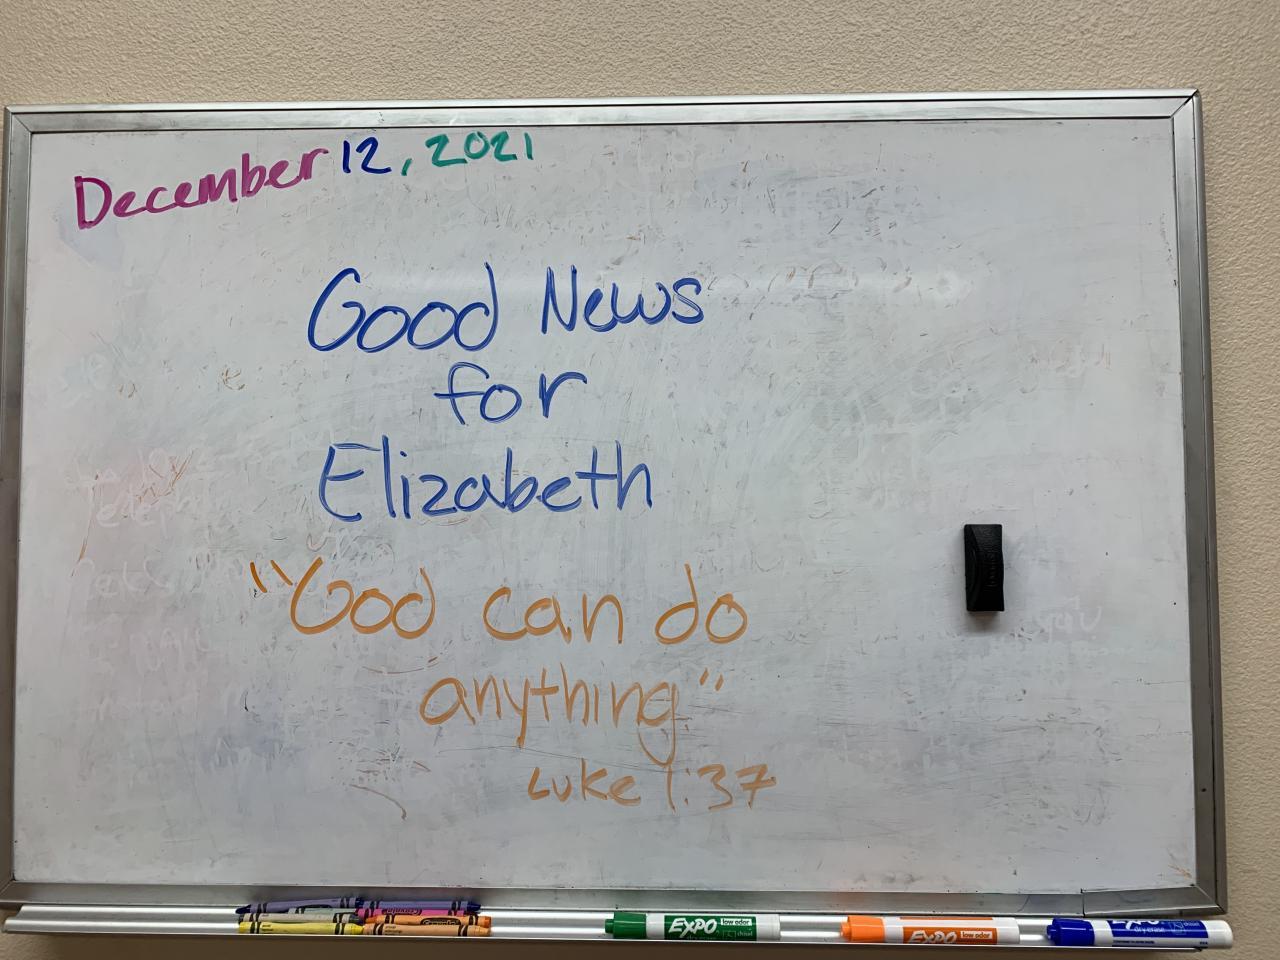 December 12, 2021
Good News
for
Elizabeth
"God can do
anything"
Luke 1:37
EXPO low odor
EXPO low odor
dry erase